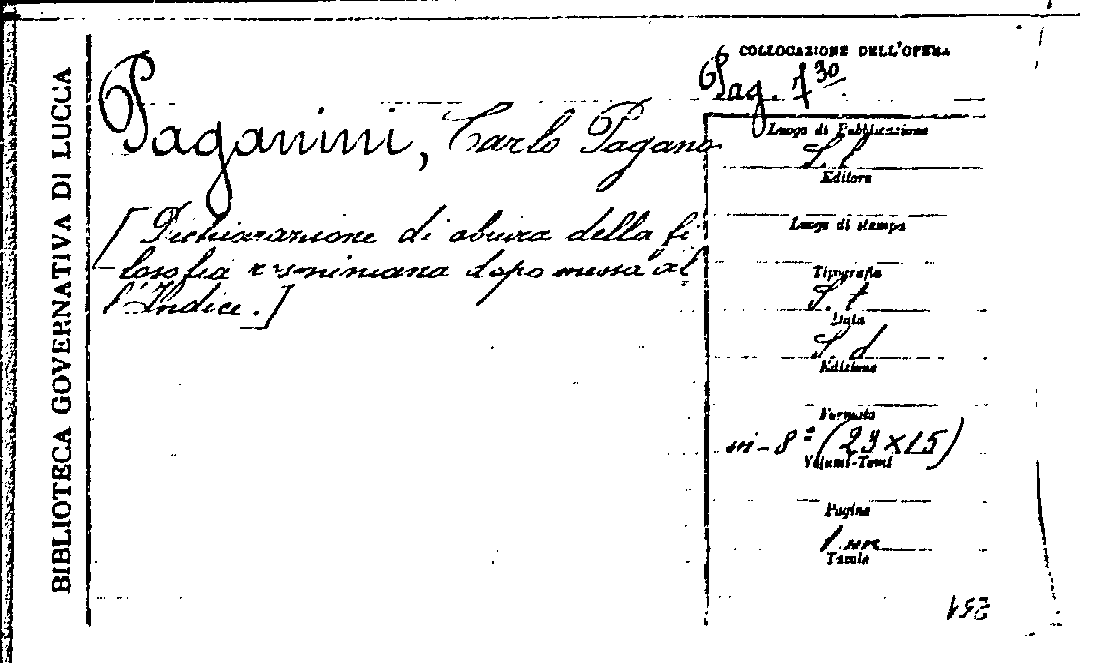 BIBLIOTECA GOVERNATIVA DI LUCCA
COLLOCAZIONE DELL'OPERA
Pag. 7 30
Paganini, Carlo Pagano
[Dichiarazione di abiura della fi
losofia rosminiana dopo messa al
l'Indice.]
Luogo di Pubblicazione
S. l
Editore
Luogo di stampa
Tipografia
S. t
Data
S. d
Edizione
Formato
in-8º (23x15)
Volumi-Tomi
Pagine
1 nn
Tavole